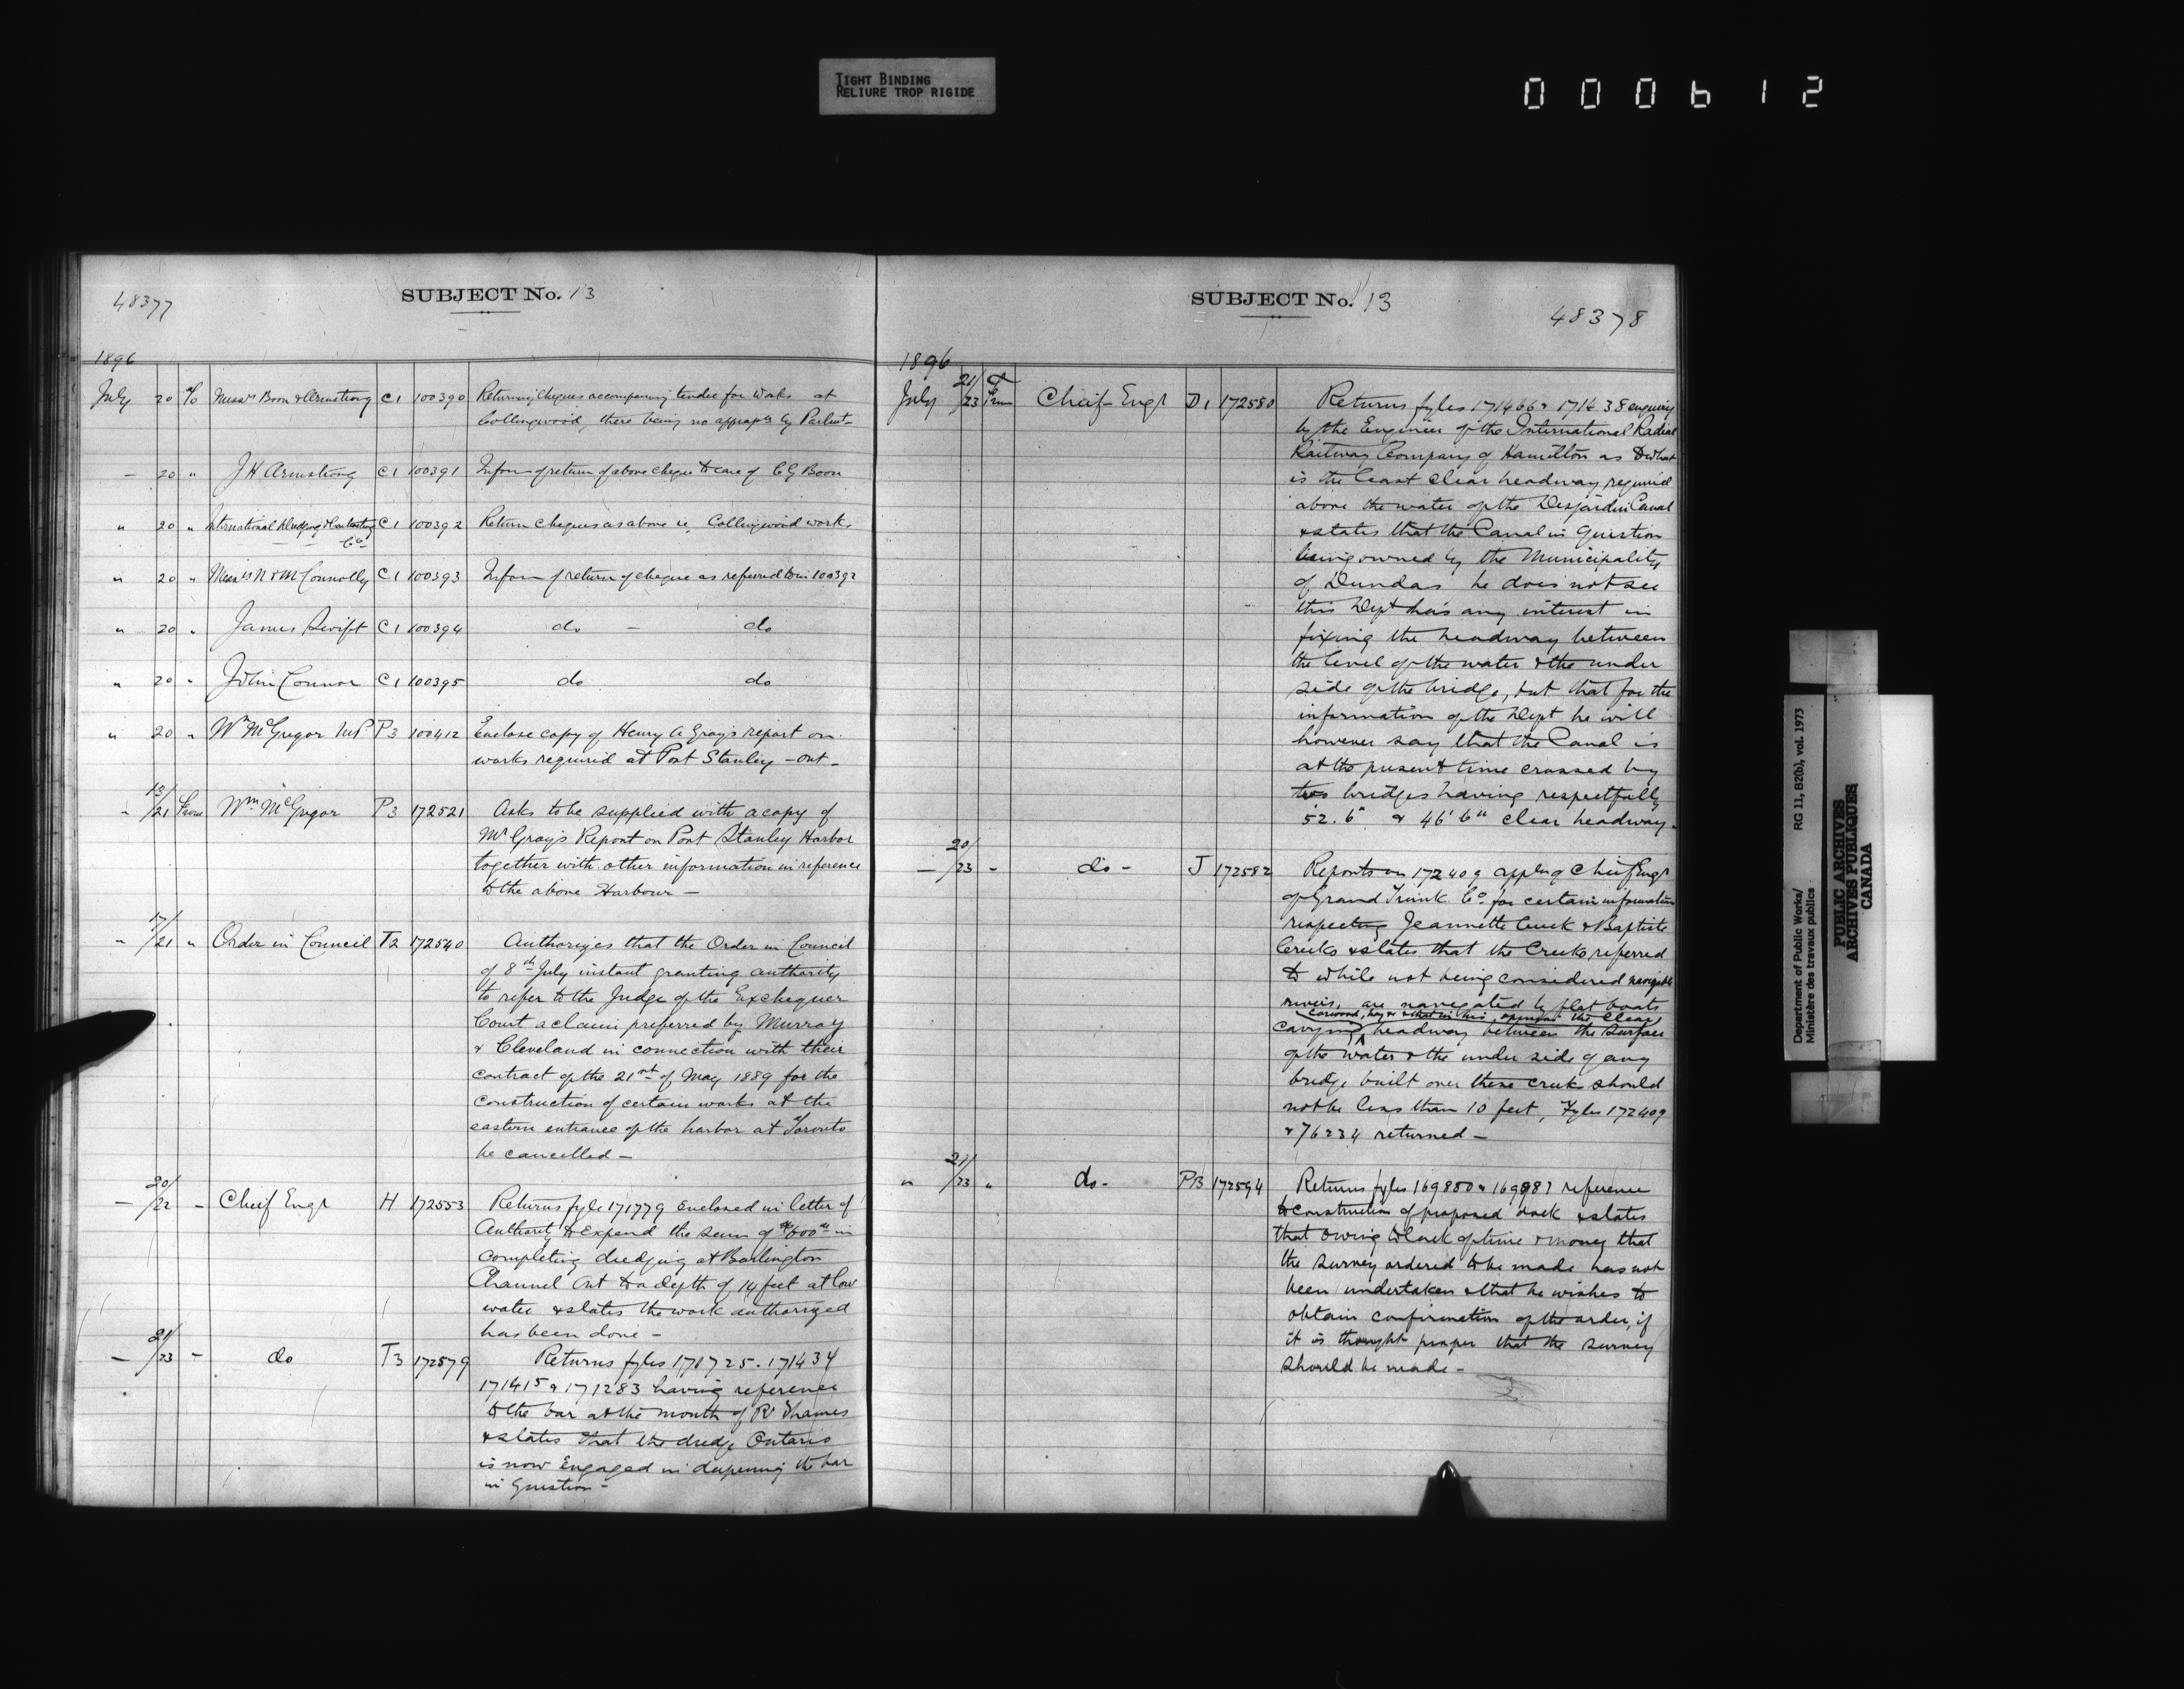 TIGHT BINDING
RELIURE TROP RIGIDE
000612
48377
SUBJECT No. 13
1896
July 20 To Messrs Boon & Armstrong C1 100390 Returning cheques accompanying tender for works at
Collingwood, there being no appropn by Parliat
— 20 " J H Armstrong C1 100391 Inform of return of above cheque to care of C G Boon
" 20 " International Dredging & Contracting C1 100392 Return cheques as above ie, Collingwood work.
Co
" 20 " Messrs N & M Connolly C1 100393 Inform of return of cheque as referred to in 100392
" 20 " James Swift C1 100394 do — do
" 20 " John Connor C1 100395 do do
" 20 " Wm McGregor M.P. P3 100412 Enclose copy of Henry A Gray's report on
works required at Port Stanley - Ont -
" 13/21 From Wm McGregor P3 172521 Asks to be supplied with a copy of
Mr Gray's Report on Port Stanley Harbor
together with other information in reference
to the above Harbour —
" 17/21 " Order in Council T2 172540 Authorizes that the Order in Council
of 8th July instant granting authority
to refer to the Judge of the Exchequer
Court a claim preferred by Murray
& Cleveland in connection with their
contract of the 21st of May 1889 for the
construction of certain works at the
eastern entrance of the harbor at Toronto
be cancelled —
— 20/22 - Cheif Engr H 172553 Returns fyle 171779 Enclosed in letter of
Authority to expend the sum of $600.00 in
completing dredging at Burlington
Channel Ont to a depth of 14 feet at low
water & states the work authorized
has been done -
— 21/23 - do T3 172579 Returns fyles 171725. 171434
171415 & 171283 having reference
to the bar at the mouth of Rr Thames
& states that the dredge Ontario
is now Engaged in deepening the bar
in Question -
SUBJECT No. 13
48378
1896
July 21/23 From Cheif Engr D1 172580 Returns fyles 171466 & 171638 enquiry
by the Engineer of the International Radial
Railway Company of Hamilton as to what
is the least clear headway required
above the water of the Desjardin Canal
& states that the Canal in Question
being owned by the Municipality
of Dundas he does not see
this Dept has any interest in
fixing the headway between
the level of the water & the under
side of the bridge, but that for the
information of the Dept he will
however say that the Canal is
at the present time crossed by
two bridges having respectfully
52.6" & 46'6" clear headway.
— 20/23 - do - J 172582 Reports on 172409 appln of Chief Engr
of Grand Trunk Co. for certain information
respecting Jeannette Creek & Baptiste
Creeks & states that the Creeks referred
to while not being considered navigable
rivers, are navigated by flat boats
Cordwood, hay & that in his opinion the clear
carrying headway between the surface
of the water & the under side of any
bridge built over these creek should
not be less than 10 feet, Fyles 172409
& 76234 returned —
" 21/23 " do - P13 172594 Returns fyles 169850 & 169987 reference
to construction of proposed dock & states
that owing to lack of time & money that
the survey ordered to be made has not
been undertaken & that he wishes to
obtain confirmation of the order, if
it is thought proper that the survey
should be made -
Department of Public Works/ RG 11, B2(b), vol. 1973
Ministère des travaux publics
PUBLIC ARCHIVES
ARCHIVES PUBLIQUES
CANADA